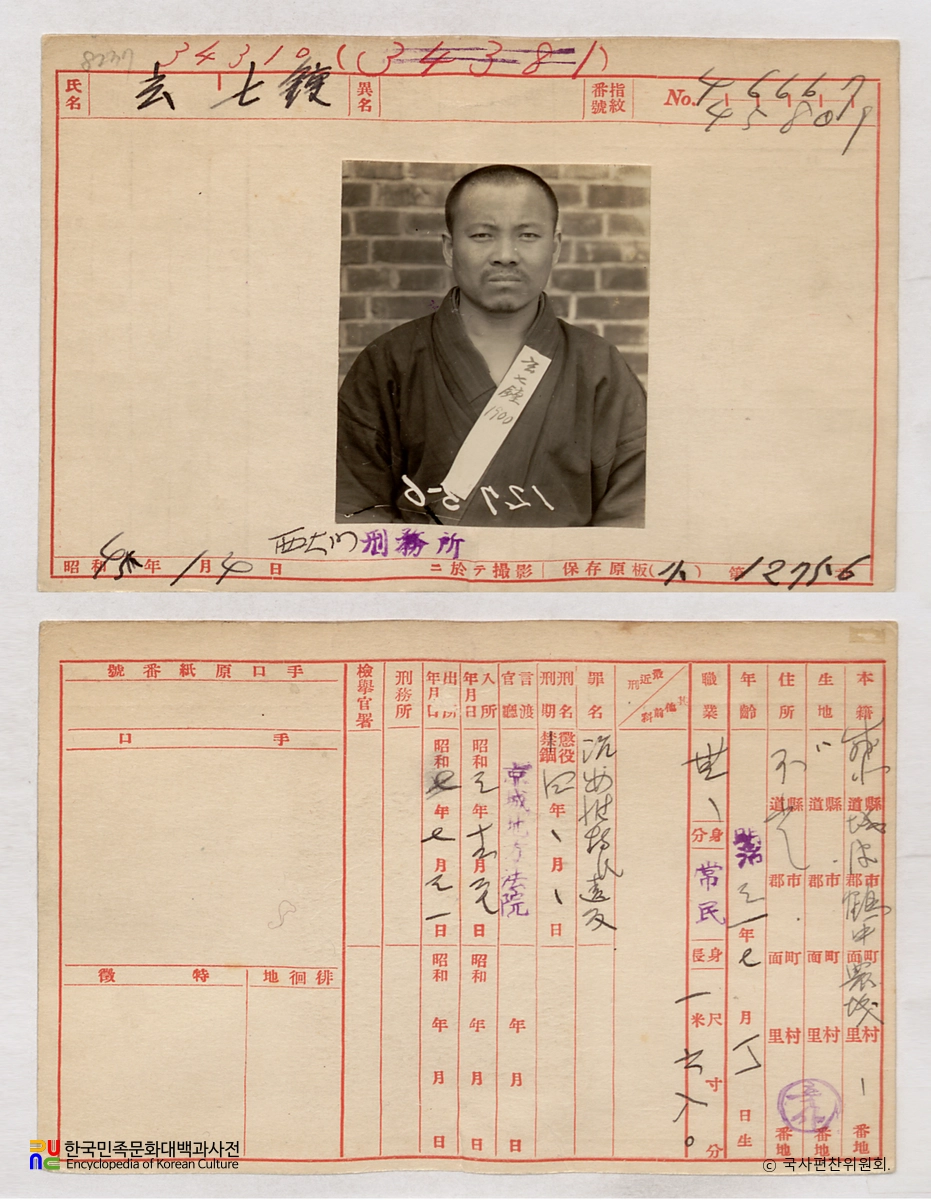 34310 (34381)
氏名
玄七鍾
異名
指紋番號
No. 46667
45809
玄七鍾
1900
12756
西大門刑務所
昭和 年 1月 4日 ニ於テ撮影 保存原板( ) 第 12756
本籍 道縣 郡市 面町 里村 番地
鶴中
農城
生地 〃 道縣 郡市 面町 里村 番地
住所 不 道縣 郡市 面町 里村 番地
年齡 年 七月 日生
職業 無
身分 常民
身長 尺米 寸 分
最近刑 其他前科
罪名 治安維持法違反
刑名 懲役 禁錮
刑期 年 月 日
言渡官廳 京城地方法院
年 月 日
入所年月日 昭和 年 月 日
昭和 年 月 日
出所年月日 昭和 七年 七月 日
昭和 年 月 日
刑務所
檢擧官署
手口原紙番號
手口
徘徊地
特徵
한국민족문화대백과사전
Encyclopedia of Korean Culture
© 국사편찬위원회.